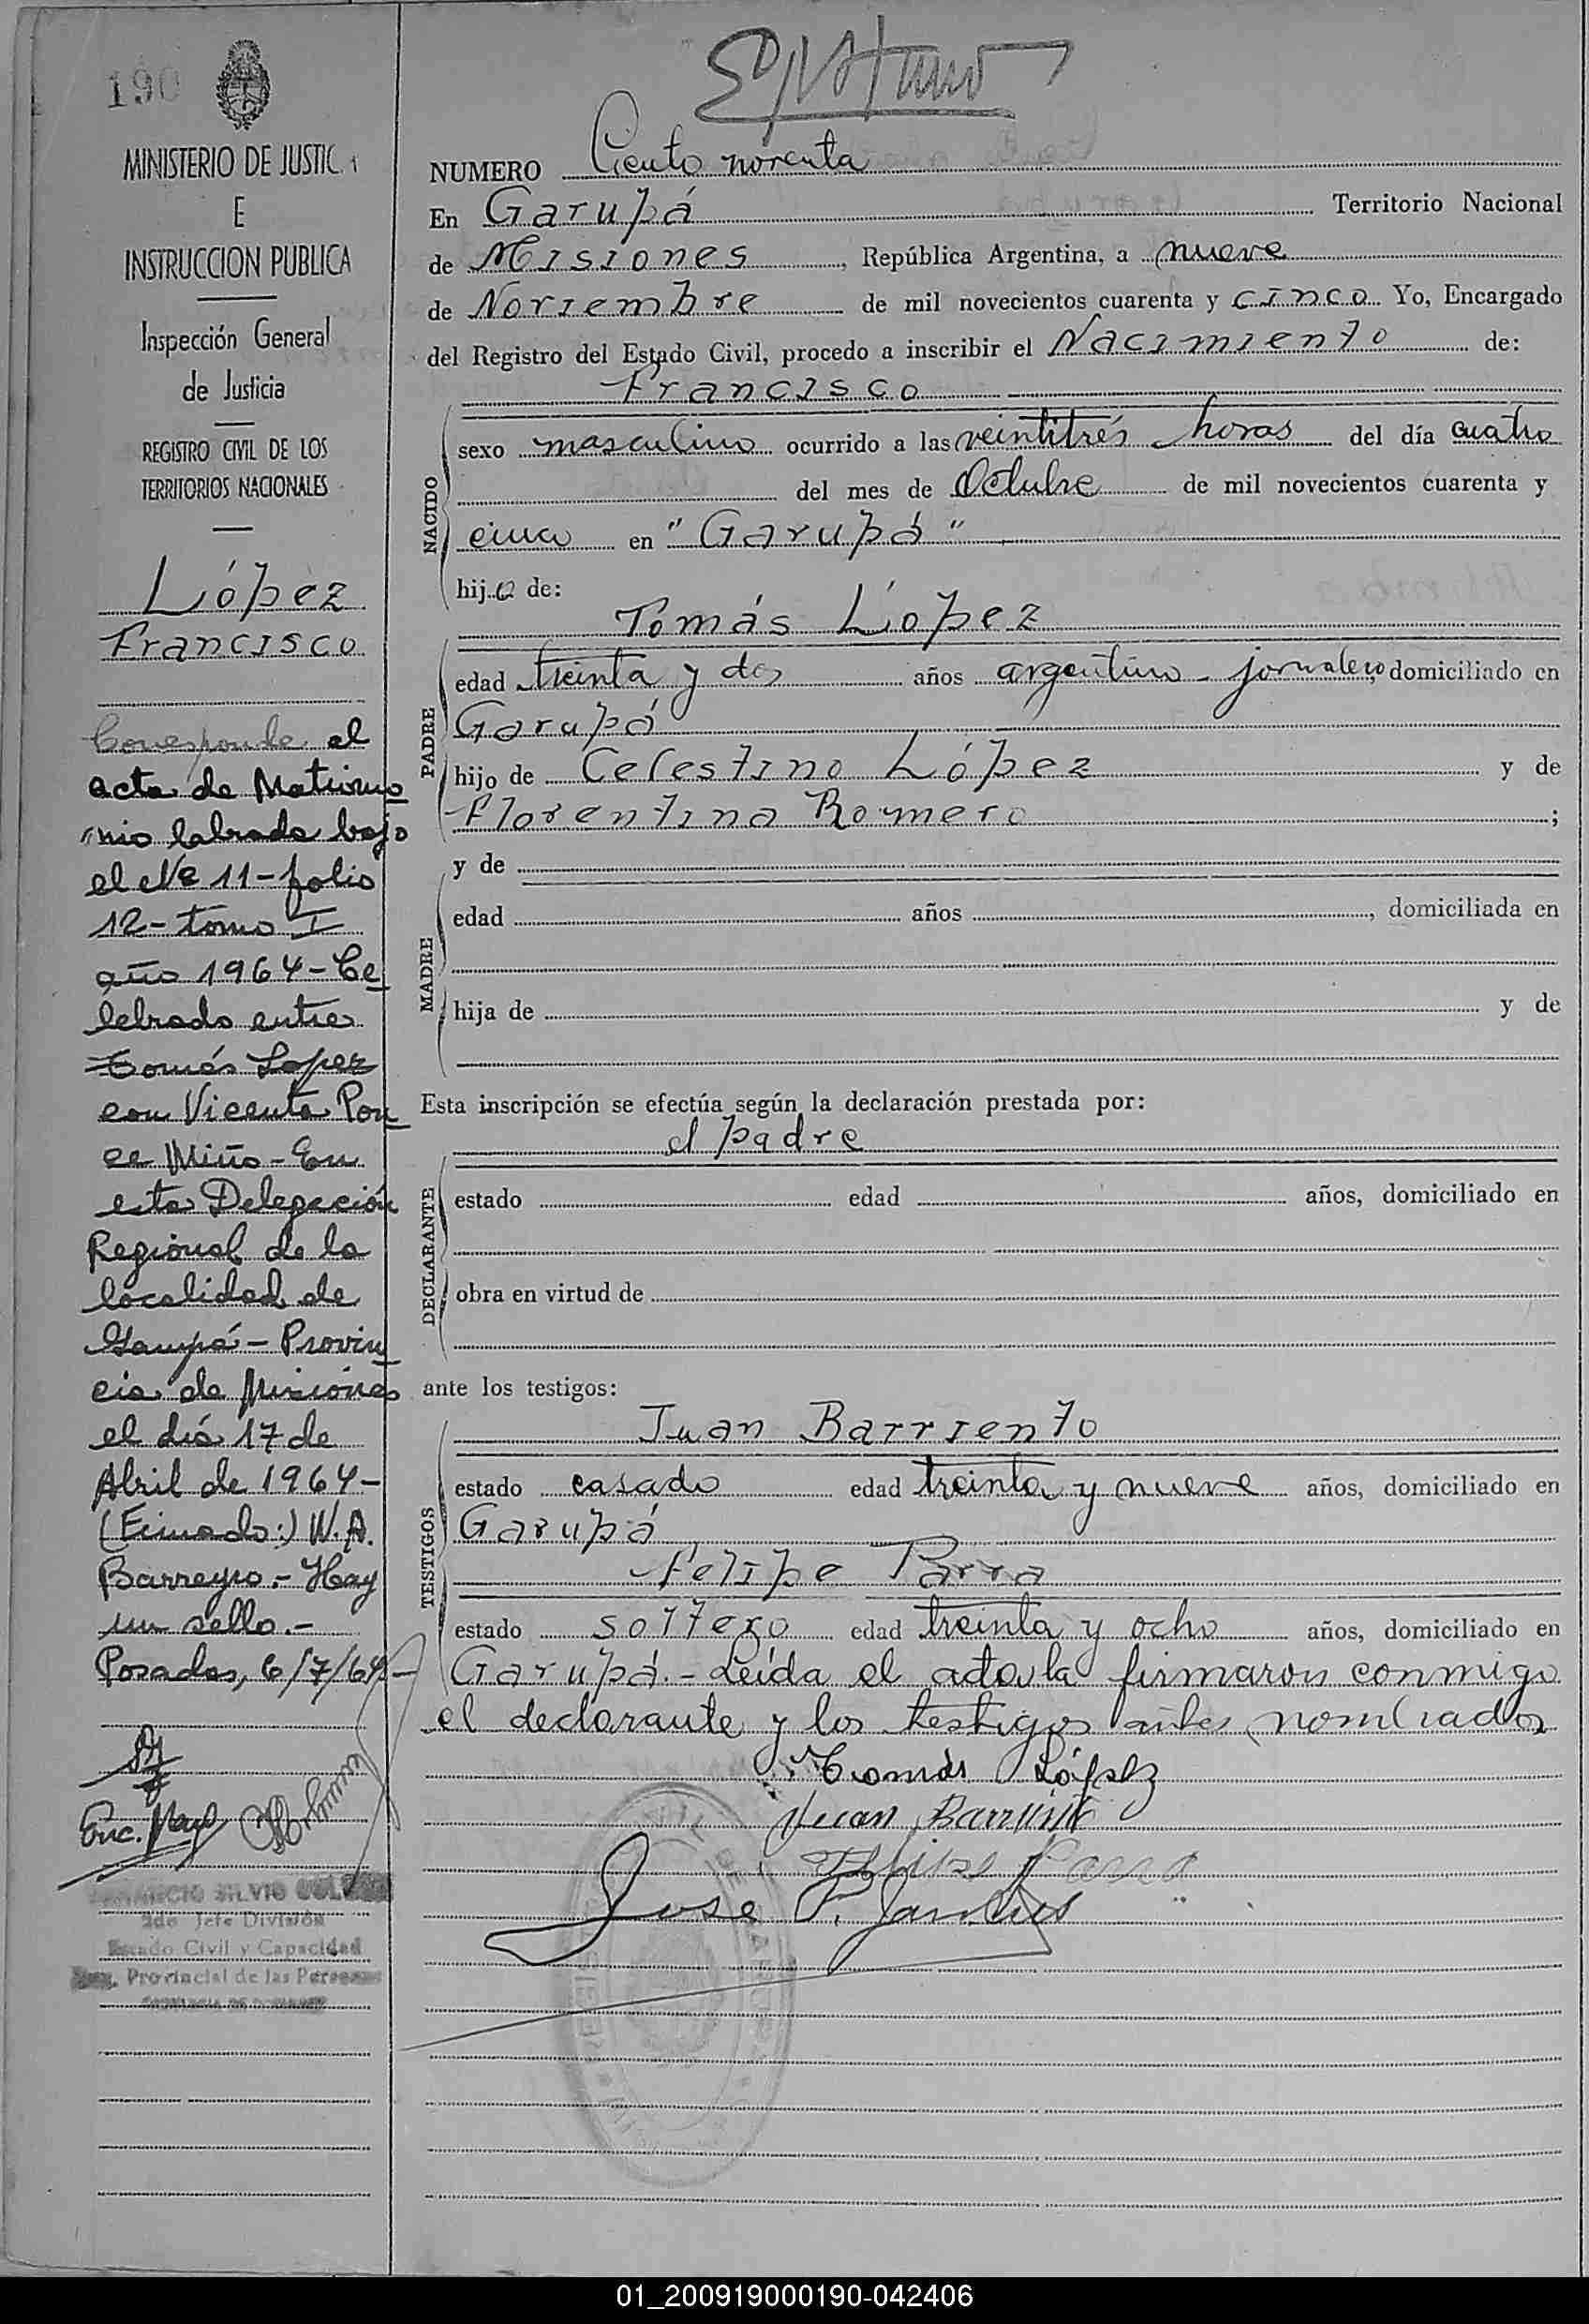 190
MINISTERIO DE JUSTIC
E
INSTRUCCION PUBLICA
Inspección General
de Justicia
REGISTRO CIVIL DE LOS
TERRITORIOS NACIONALES
López
Francisco
Corresponde el
acta de Matrimo
nio labrada bajo
el Nº 11-folio
12-tomo I
año 1964-Ce
lebrado entre
Tomás Lopez
con Vicenta Pon
ce Miño-En
esta Delegación
Regional de la
localidad de
Garupá-Provin
cia de Misiones
el día 17 de
Abril de 1964-
(Firmado:) W.A.
Barreyro.-Hay
un sello.-
Posadas, 6/7/64-
SILVIO
2do Jefe División
Estado Civil y Capacidad
Provincial de las Personas
NUMERO Ciento noventa
En Garupá Territorio Nacional
de Misiones, República Argentina, a nueve
de Noviembre de mil novecientos cuarenta y cinco Yo, Encargado
del Registro del Estado Civil, procedo a inscribir el Nacimiento de:
Francisco
NACIDO
sexo masculino ocurrido a las veintitrés horas del día cuatro
del mes de Octubre de mil novecientos cuarenta y
cinco en "Garupá"
hijo de:
Tomás López
PADRE
edad treinta y dos años argentino - jornalero, domiciliado en
Garupá
hijo de Celestino López y de
Florentina Romero;
y de
MADRE
edad años, domiciliada en
hija de y de
Esta inscripción se efectúa según la declaración prestada por:
el padre
DECLARANTE
estado edad años, domiciliado en
obra en virtud de
ante los testigos:
Juan Barriento
TESTIGOS
estado casado edad treinta y nueve años, domiciliado en
Garupá
Felipe Parra
estado soltero edad treinta y ocho años, domiciliado en
Garupá.-Leída el acta la firmaron conmigo
el declarante y los testigos antes nombrados
Tomás López
Juan Barriento
Felipe Parra
Jose F.
01_200919000190-042406